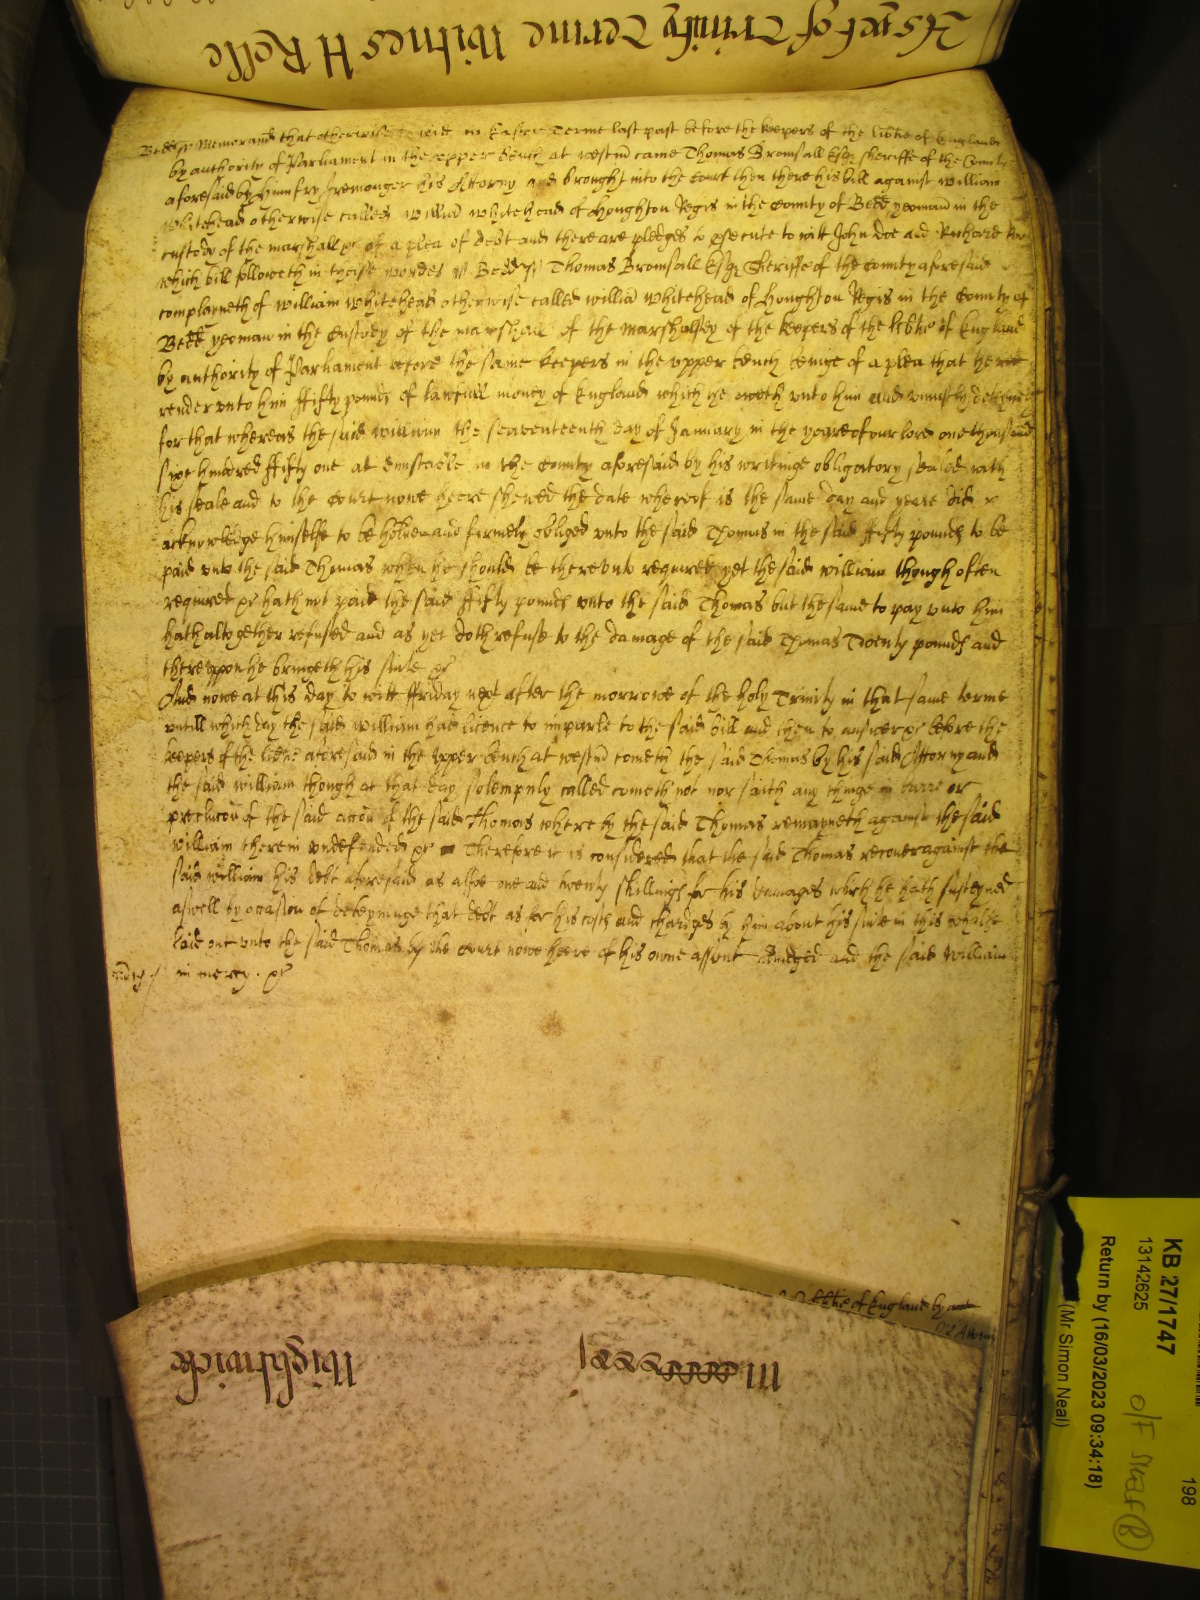 As yet of Trinity Terme Witnes H Rolle
Bedd ss Memorand that otherwise to witt in Easter Terme last past before the keepers of the libtie of England
by authority of Parliament in the upper bench at westm came Thomas Bromsall Esqr Sheriffe of the County
aforesaid by Humfry Iremonger his Attorny and brought into the Court then there his bill against William
Whitehead otherwise called Willia Whitehead of Houghton Regis in the County of Bedd yeoman in the
custody of the marshall &c of a plea of debt and there are pledges to psecute to witt John Doe and Richard Roe
which bill followeth in theise wordes ss Bedd ss Thomas Bromsall Esqr Sheriffe of the County aforesaid
complayneth of William Whitehead otherwise called willia Whitehead of Houghton Regis in the County of
Bedd yeoman in the Custody of the marshall of the Marshalsey of the keepers of the libtie of England
by authority of Parliament before the same keepers in the upper bench beinge of a plea that he
render unto him ffifty pounds of lawfull money of England which he oweth unto him and uniustly deteyneth
for that whereas the said William the seaventeenth day of January in the yeare of our lord one thousand
sixe hundred ffifty one at Dunstable in the County aforesaid by his writinge obligatory sealed with
his seale and to the Court nowe heere shewed the date whereof is the same day and yeare did
acknowledge himselfe to be holden and firmely obliged unto the said Thomas in the said ffifty pounds to be
paid unto the said Thomas when he should be thereunto required yet the said William though often
required &c hath not paid the said ffifty pounds unto the said Thomas but the same to pay unto him
hath altogether refused and as yet doth refuse to the damage of the said Thomas Twenty pounds and
thereuppon he bringeth his suite &c
And nowe at this day to witt ffriday next after the morrowe of the holy Trinity in that same terme
untill which day the said William had licence to imparle to the said bill and then to answer &c before the
keepers of the libtie aforesaid in the upper bench at westm cometh the said Thomas by his said Attorny and
the said William though at that day solempnly called cometh not nor saith any thinge in barre or
preclucon of the said accon of the said Thomas whereby the said Thomas remayneth against the said
William therein undefended &c Therefore it is considered that the said Thomas recover against the
said William his debt aforesaid as alsoe one and twenty shillings for his damages which he hath susteyned
aswell by occasion of deteyninge that debt as for his costs and chardges by him about his suite in this behalfe
laid out unto the said Thomas by the Court nowe heere of his owne assent adiudged and the said William
in mercy &c
libtie of England by
Attorny
Wightwicke
KB 27/1747
13142625
198
Return by (16/03/2023 09:34:18)
(Mr Simon Neal)
O/F